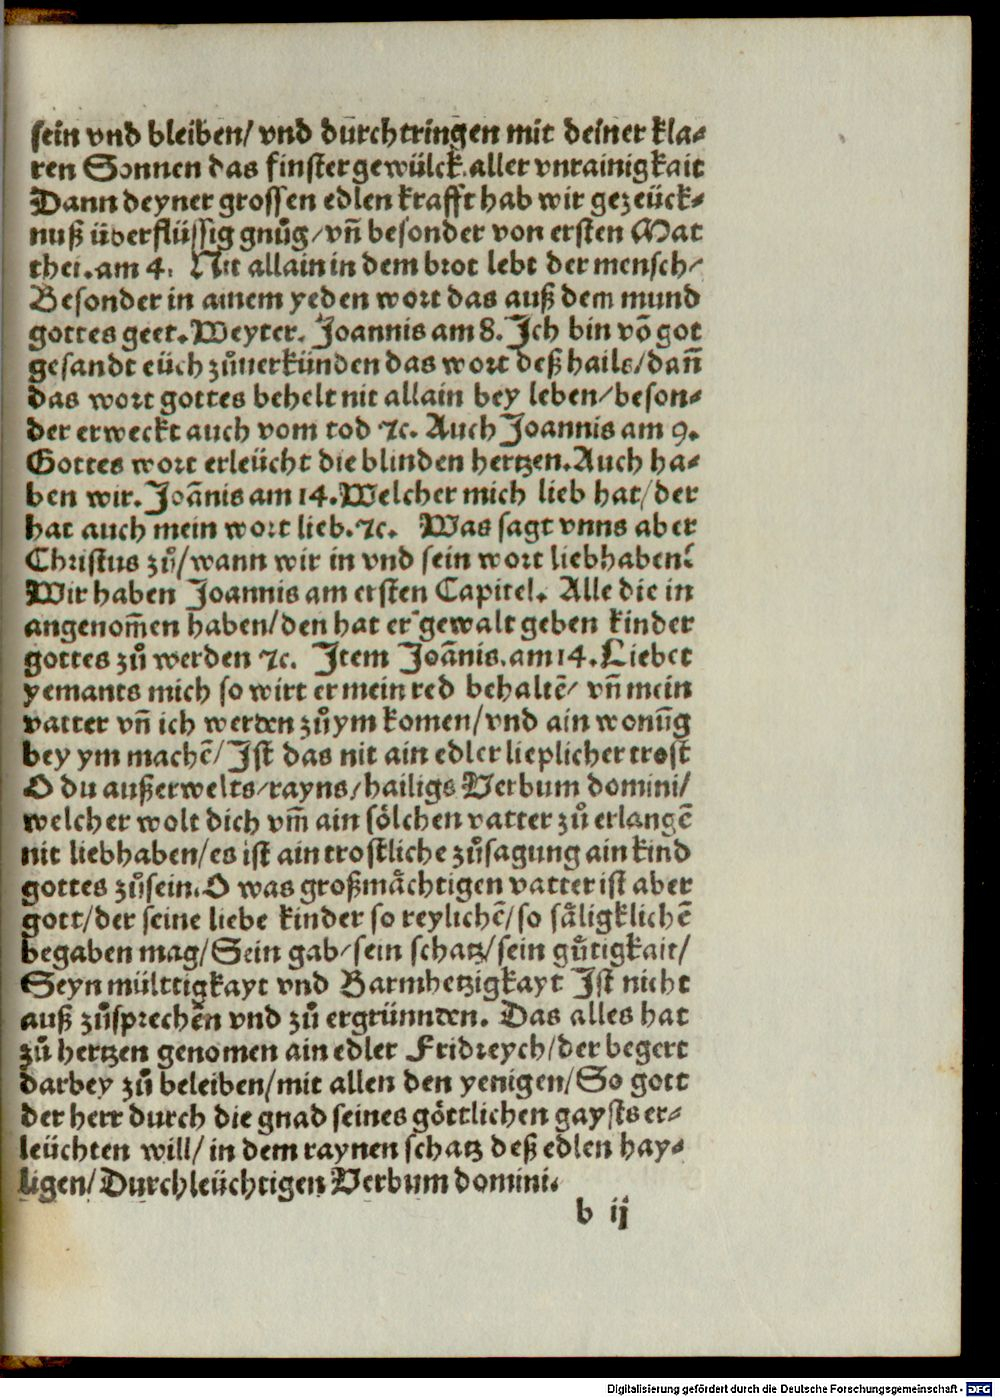 sein vnd bleiben/ vnd durchtringen mit deiner kla⸗
ren Sonnen das finster gewülck.aller vnrainigkait
Dann deyner grossen edlen krafft hab wir gezeück⸗
nuß überflüssig gnůg/vñ besonder von ersten Mat
thei.am 4. Nit allain in dem brot lebt der mensch/
Besonder in ainem yeden wort das auß dem mund
gottes geet.Weyter. Joannis am 8.Ich bin võ got
gesandt eüch zůuerkünden das wort deß hails/dañ
das wort gottes behelt nit allain bey leben/beson⸗
der erweckt auch vom tod ⁊c. Auch Joannis am 9.
Gottes wort erleücht die blinden hertzen.Auch ha⸗
ben wir.Joãnis am 14.Welcher mich lieb hat/der
hat auch mein wort lieb.⁊c. Was sagt vnns aber
Christus zů/wann wir in vnd sein wort liebhaben?
Wir haben Joannis am ersten Capitel. Alle die in
angenom̃en haben/den hat er gewalt geben kinder
gottes zů werden ⁊c. Item Joãnis.am 14.Liebet
yemants mich so wirt er mein red behaltẽ/ vñ mein
vatter vñ ich werden zůym komen/vnd ain wonũg
bey ym machẽ/Ist das nit ain edler lieplicher trost
O du außerwelts/rayns/hailigs Verbum domini/
welcher wolt dich vm̃ ain sölchen vatter zů erlangẽ
nit liebhaben/es ist ain trostliche zůsagung ain kind
gottes zůsein.O was großmächtigen vatter ist aber
gott/der seine liebe kinder so reylichẽ/so säligklichẽ
begaben mag/Sein gab/sein schatz/sein gůtigkait/
Seyn mülttigkayt vnd Barmhetzigkayt Ist nicht
auß zůsprechen vnd zů ergrünnden. Das alles hat
zů hertzen genomen ain edler Fridreych/der begert
darbey zů beleiben/mit allen den yenigen/So gott
der herr durch die gnad seines göttlichen gaysts er⸗
leüchten will/ in dem raynen schatz deß edlen hay⸗
ligen/Durchleüchtigen Verbum domini.
b ij
Digitalisierung gefördert durch die Deutsche Forschungsgemeinschaft - DFG